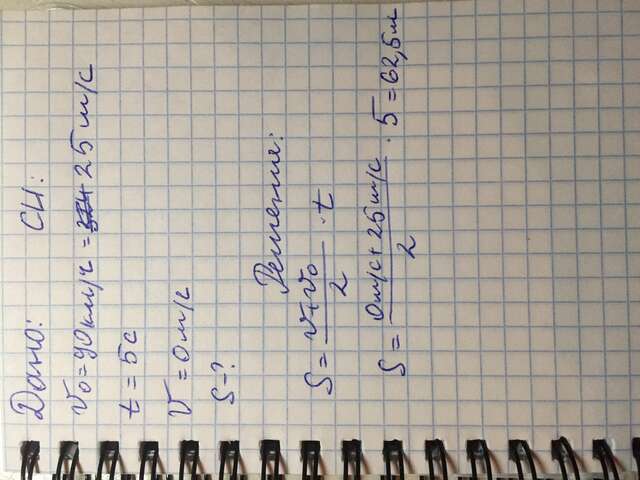 Дано: СИ:
v₀ = 90 км/ч = 25 м/с
t = 5с
v = 0 м/с
S - ?
Решение:
S = (v + v₀)/2 · t
S = (0 м/с + 25 м/с)/2 · 5 = 62,5 м